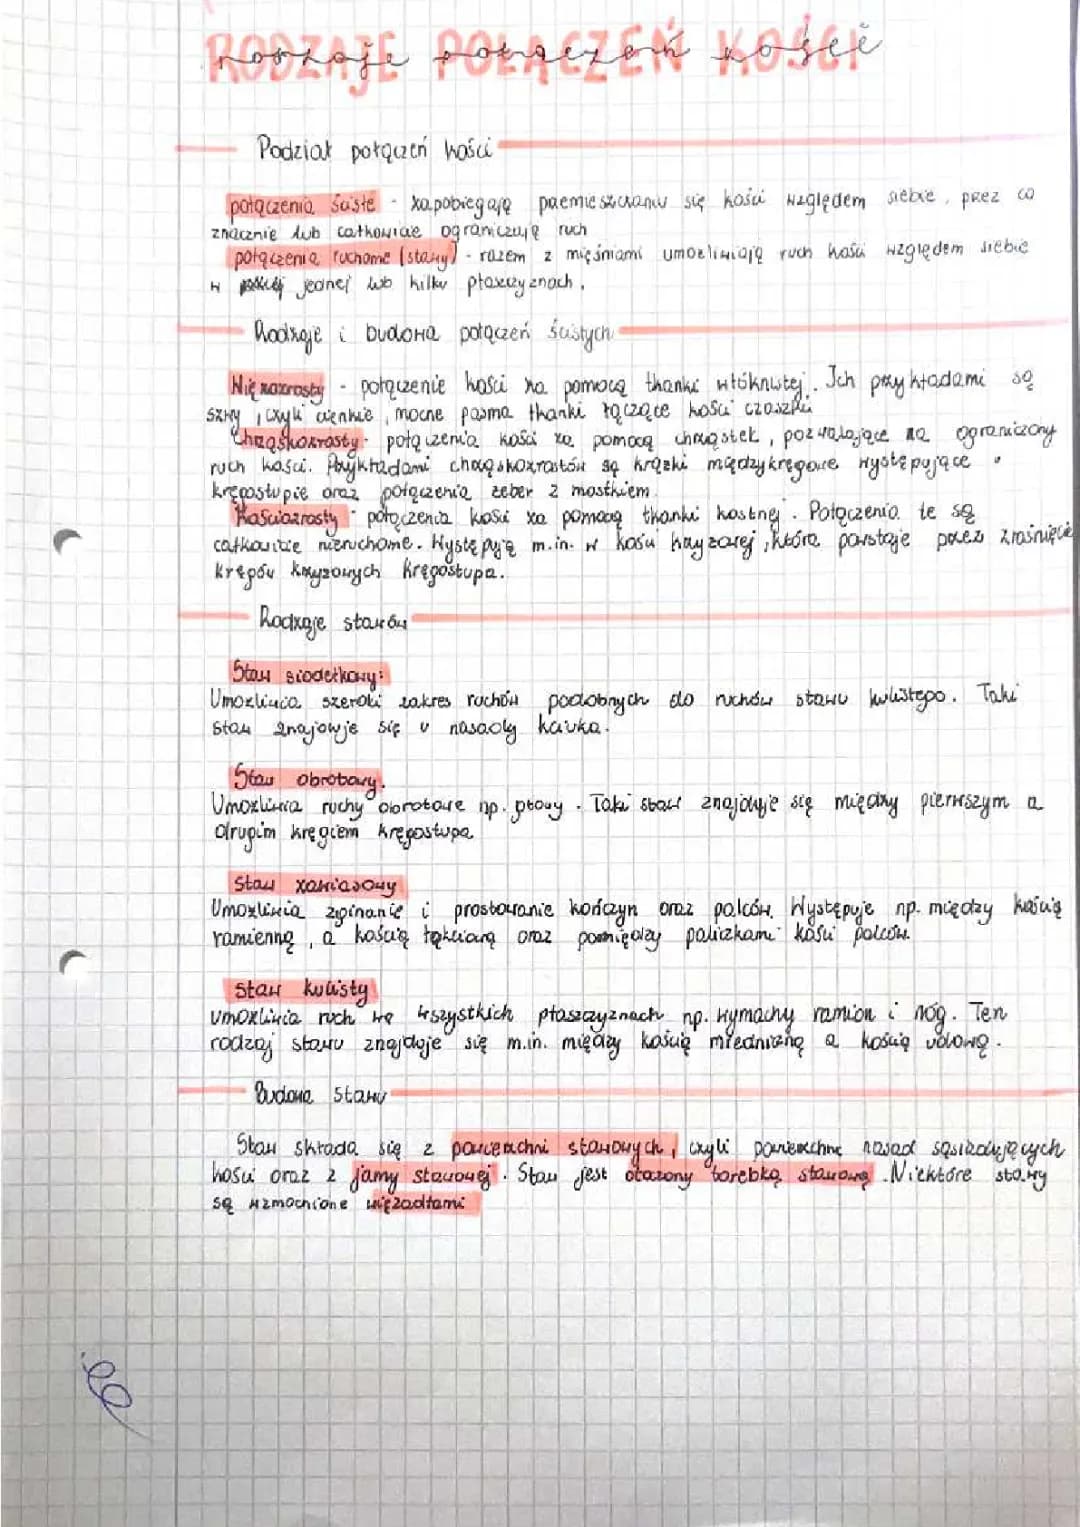 RODZAJE POŁĄCZEŃ KOŚCI
Podział połączeń kości
połączenia ścisłe - zapobiegają przemieszczaniu się kości względem siebie, przez co
znacznie lub całkowicie ograniczują ruch
połączenia ruchome (stawy) - razem z mięśniami umożliwiają ruch kości względem siebie
w jednej lub kilku płaszczyznach.
Rodzaje i budowa połączeń ścisłych
Więzozrosty - połączenie kości za pomocą tkanki włóknistej. Ich przykładami są
szwy, czyli cienkie, mocne pasma tkanki łączące kości czaszki
Chrząskozrosty - połączenia kości za pomocą chrząstek, pozwalające na ograniczony
ruch kości. Przykładami chrząskozrostów są krążki międzykręgowe występujące w
kręgosłupie oraz połączenia żeber z mostkiem.
Kościozrosty - połączenia kości za pomocą tkanki kostnej. Połączenia te są
całkowicie nieruchome. Występują m.in. w kości krzyżowej, która powstaje przez zrośnięcie
kręgów krzyżowych kręgosłupa.
Rodzaje stawów
Staw siodełkowy:
Umożliwia szeroki zakres ruchów podobnych do ruchów stawu kulistego. Taki
staw znajduje się u nasady kciuka.
Staw obrotowy.
Umożliwia ruchy obrotowe np. głowy. Taki staw znajduje się między pierwszym a
drugim kręgiem kręgosłupa
Staw zawiasowy
Umożliwia zginanie i prostowanie kończyn oraz palców. Występuje np. między kością
ramienną, a kością łokciową oraz pomiędzy paliczkami kości palców.
Staw kulisty
umożliwia ruch we wszystkich płaszczyznach np. wymachy ramion i nóg. Ten
rodzaj stawu znajduje się m.in. między kością miedniczną a kością udową.
Budowa stawu
Staw składa się z powierzchni stawowych, czyli powierzchnę nasad sąsiadujących
kości oraz z jamy stawowej. Staw jest otoczony torebką stawową. Niektóre stawy
są wzmocnione więzadłami